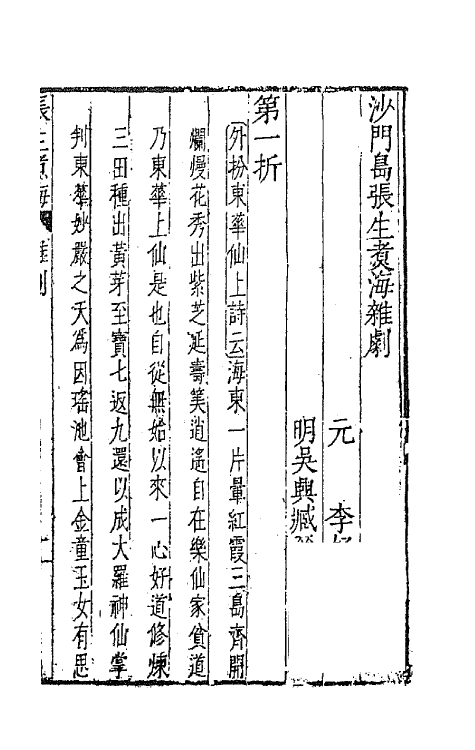 沙門島張生煮海雜劇
元 李
明吳興臧
第一折
外扮東華仙上詩云海東一片暈紅霞三島齊開
爛慢花秀出紫芝延壽筭逍遙自在樂仙家貧道
乃東華上仙是也自從無始以來一心好道修煉
三田種出黃芽至寶七返九還以成大羅神仙掌
判東華妙嚴之天爲因瑤池會上金童玉女有思
張生煮海 雜劇 一